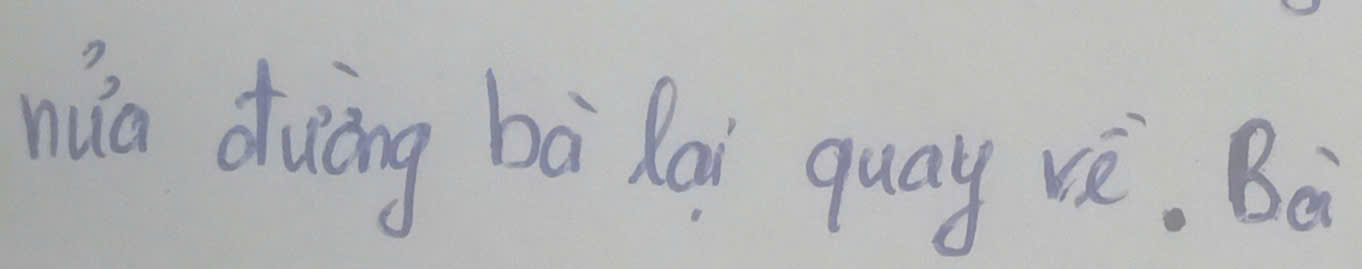 nửa đường bà lại quay về. Bà